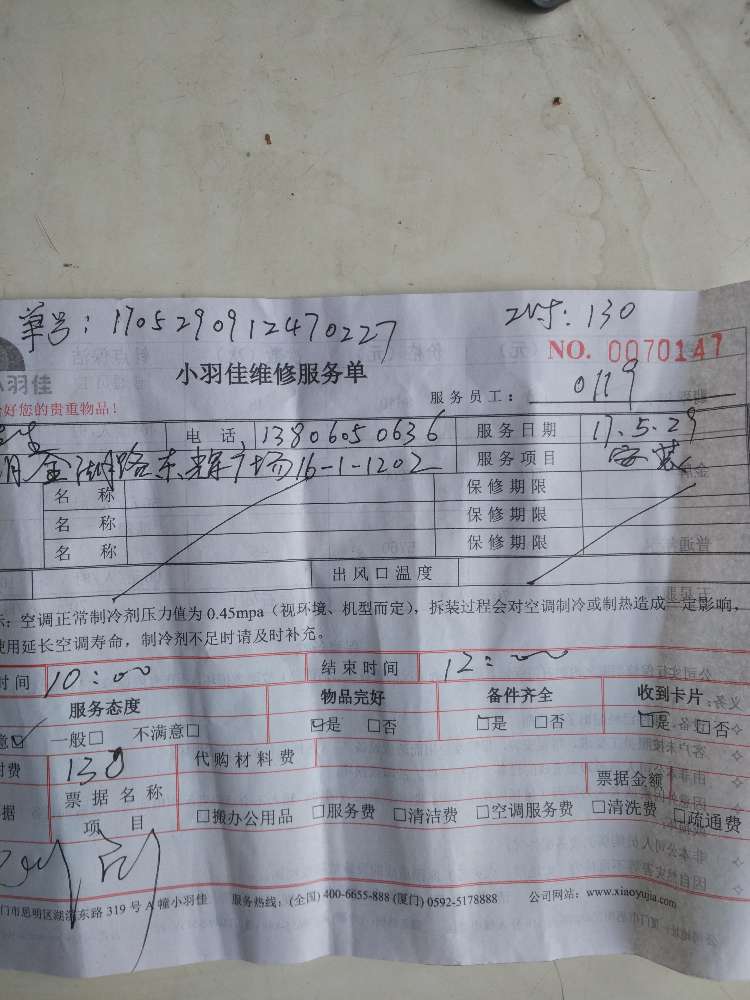 单号：1705290912470227 130
NO. 0070147
小羽佳 小羽佳维修服务单 服务员工： 0119
好您的贵重物品！
电 话 13806050636 服务日期 17.5.29
金湖路东辉广场16-1-1202 服务项目 安装
名 称 保修期限
名 称 保修期限
名 称 保修期限
出风口温度
：空调正常制冷剂压力值为 0.45mpa（视环境、机型而定），拆装过程会对空调制冷或制热造成一定影响，
使用延长空调寿命，制冷剂不足时请及时补充。
时间 10：00 结束时间 12：00
服务态度 物品完好 备件齐全 收到卡片
意☑ 一般□ 不满意□ ☑是 □否 ☑是 □否 ☑是 □否
费 130 代购材料费
据 票据名称 票据金额
项 目 □搬办公用品 □服务费 □清洁费 □空调服务费 □清洗费 □疏通费
门市思明区湖滨东路 319 号 A 幢小羽佳 服务热线：(全国) 400-6655-888 (厦门) 0592-5178888 公司网站：www.xiaoyujia.com